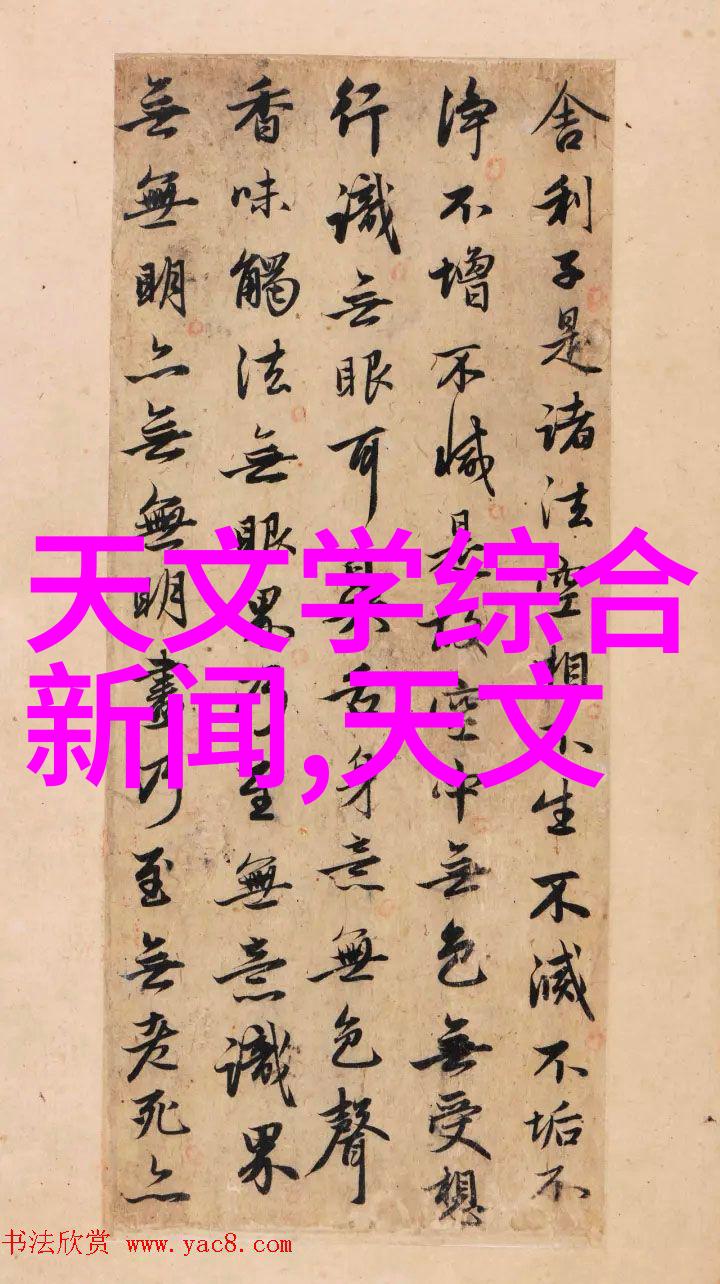 舍利子是諸法空相不生不滅不垢不
淨不增不減是故空中無色無受想
行識無眼耳鼻舌身意無色聲
香味觸法無眼界乃至無意識界
無無明亦無無明盡乃至無老死亦
天文学综合
新闻,天文
书法欣赏 www.yac8.com